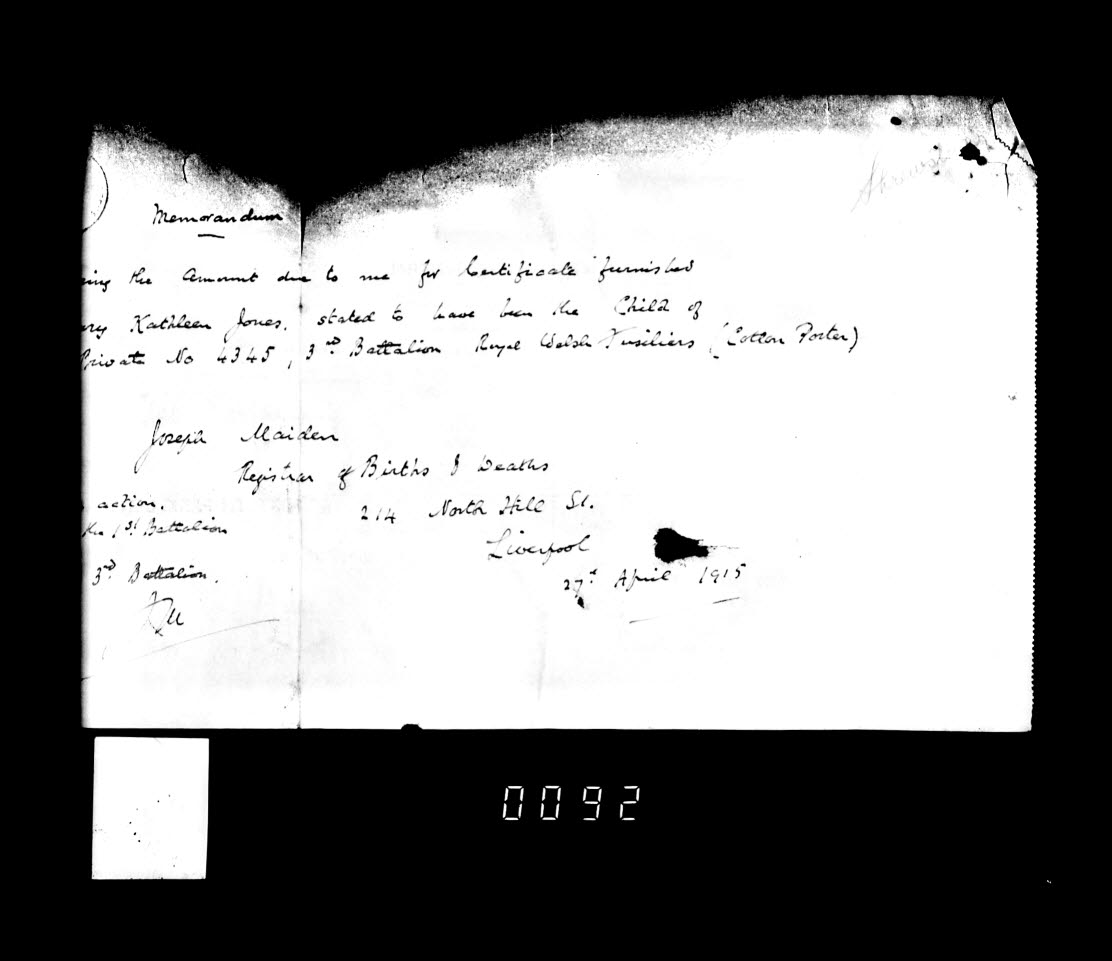 Memorandum
ing the Amount due to me for Certificate furnished
ry Kathleen Jones, stated to have been the Child of
Private No 4345, 3rd Battalion Royal Welsh Fusiliers (Cotton Porter)
Joseph Maiden
Registrar of Births & Deaths
action.
214 North Hill St.
the 1st Battalion
Liverpool
3rd Battalion.
27th April 1915
0092